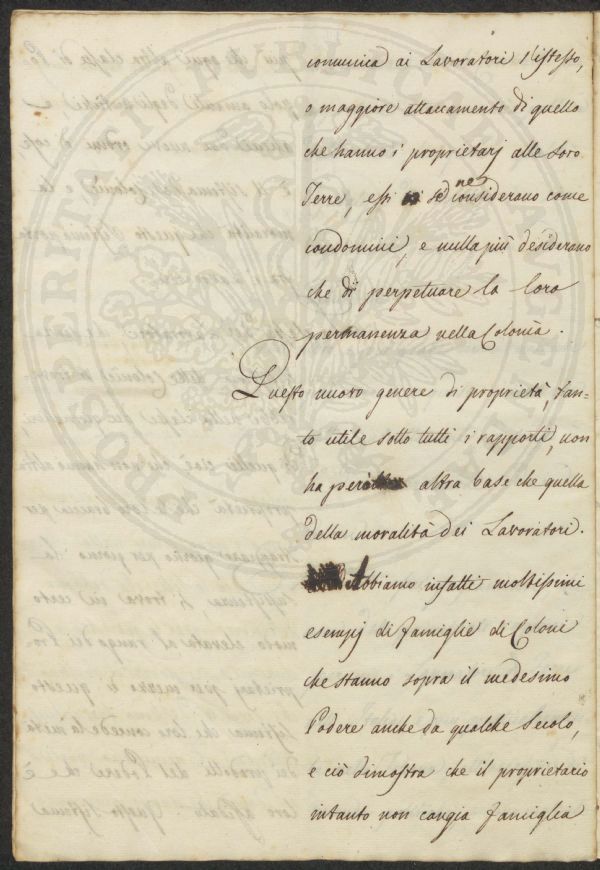 comunica ai Lavoratori l'istesso,
o maggiore attaccamento di quello
che hanno i proprietarj alle loro
Terre, essi se ne considerano come
condomini, e nulla più desiderano
che di perpetuare la loro
permanenza nella Colonia.
Questo nuovo genere di proprietà, tan=
to utile sotto tutti i rapporti, non
ha però altra base che quella
della moralità dei Lavoratori.
Abbiamo infatti moltissimi
esempj di famiglie di Coloni
che stanno sopra il medesimo
Podere anche da qualche Secolo,
e ciò dimostra che il proprietario
intanto non cangia famiglia